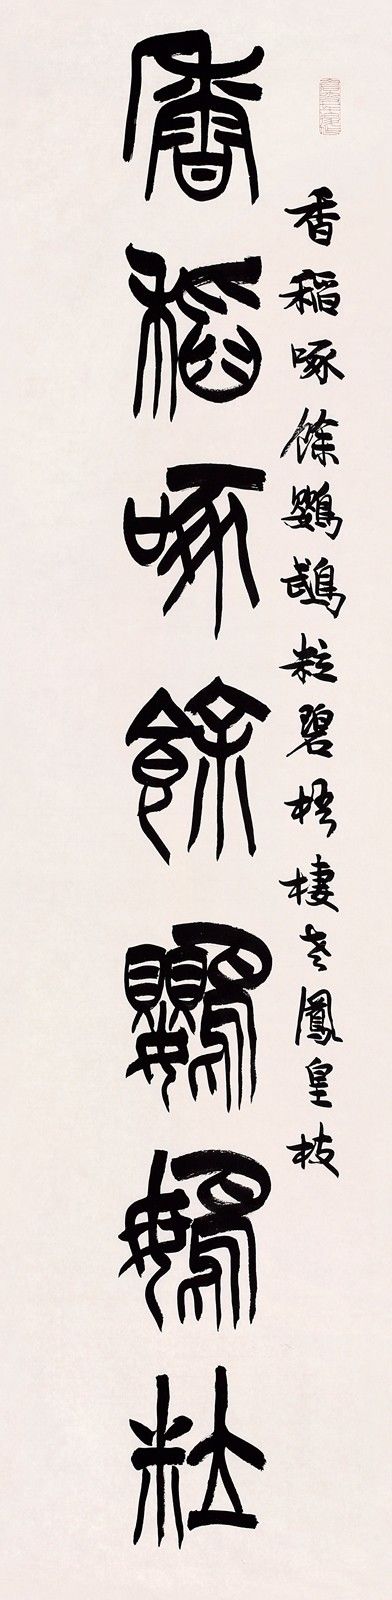 香稻啄餘鸚鵡粒碧梧棲老鳳皇枝
香稻啄餘鸚䳇粒